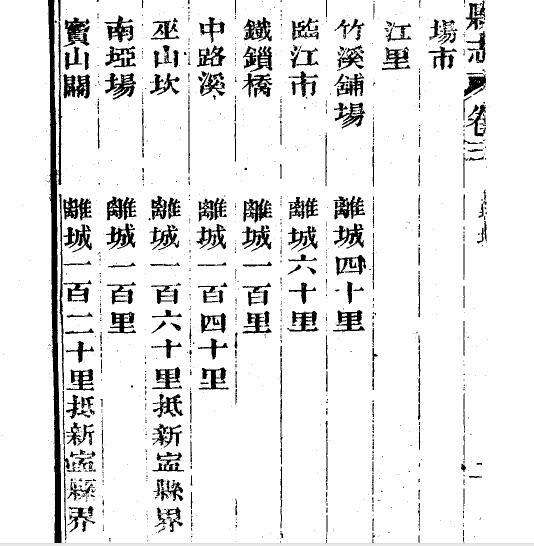 縣志 卷三
場市
江里
竹溪鋪場 離城四十里
臨江市 離城六十里
鐵鎖橋 離城一百里
中路溪 離城一百四十里
巫山坎 離城一百六十里抵新寍縣界
南埡場 離城一百里
寶山關 離城一百二十里抵新寍縣界